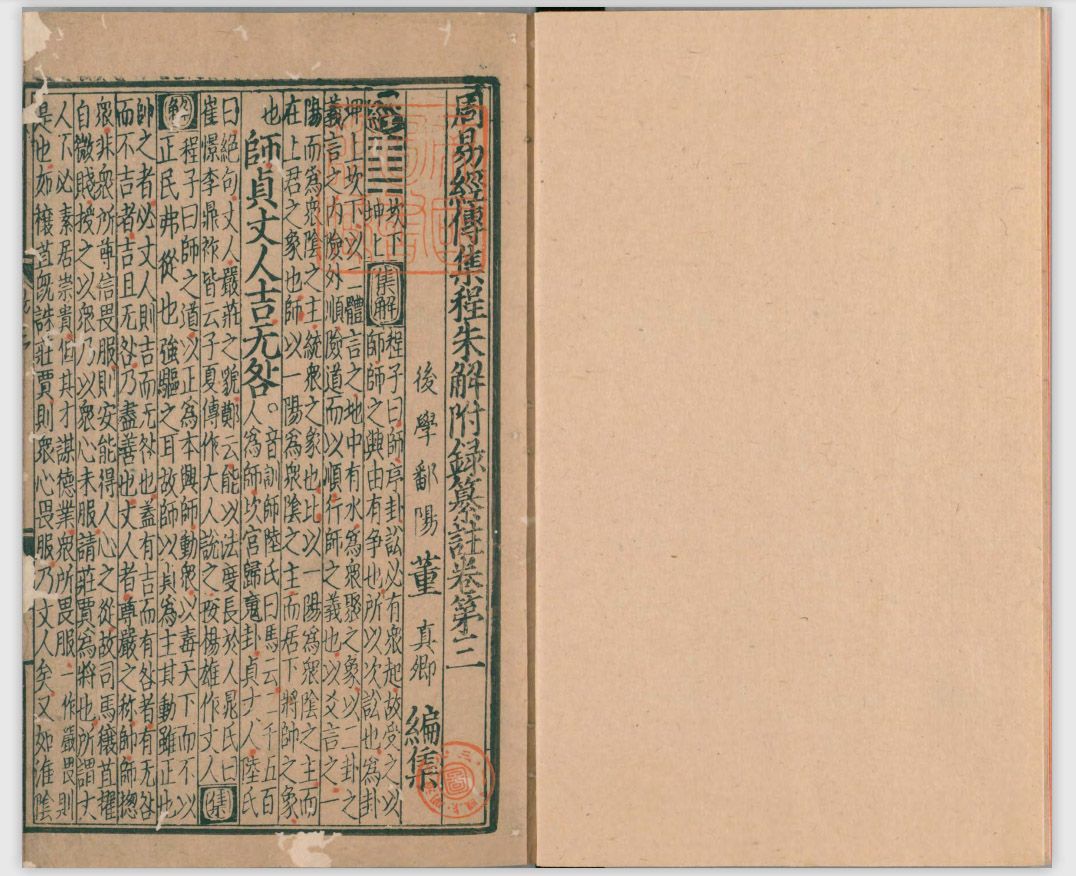 周易經傳集程朱解附録纂註卷第三
後學鄱陽董真卿編集
經䷆坎下
坤上集解程子曰師序卦訟必有衆起故受之以
師師之興由有争也所以次訟也爲卦
坤上坎下以二體言之地中有水爲衆聚之象以二卦之
義言之内險外順險道而以順行師之義也以爻言之一
陽而爲衆陰之主統衆之象也比以一陽爲衆陰之主而
在上君之象也師以一陽爲衆陰之主而居下將帥之象
也
師貞丈人吉无咎。音訓師陸氏曰馬云二千五百
人爲師坎宫歸䰟卦貞丈人陸氏
曰絶句丈人嚴莊之貌鄭云能以法度長於人晁氏曰
崔憬李鼎祚皆云子夏傳作大人説之按楊雄作丈人集
解程子曰師之道以正爲本興師動衆以毒天下而不以
正民弗從也強驅之耳故師以貞爲主其動雖正也
帥之者必丈人則吉而无咎也蓋有吉而有咎者有无咎
而不吉者吉且无咎乃盡善也丈人者尊嚴之称帥師揔
衆非衆所尊信畏服則安能得人心之從故司馬穰苴擢
自微賤授之以衆乃以衆心未服請莊賈爲將也所謂丈
人不必素居崇貴但其才謀德業衆所畏服一作嚴畏則
是也如穰苴旣誅莊賈則衆心畏服乃丈人矣又如淮陰